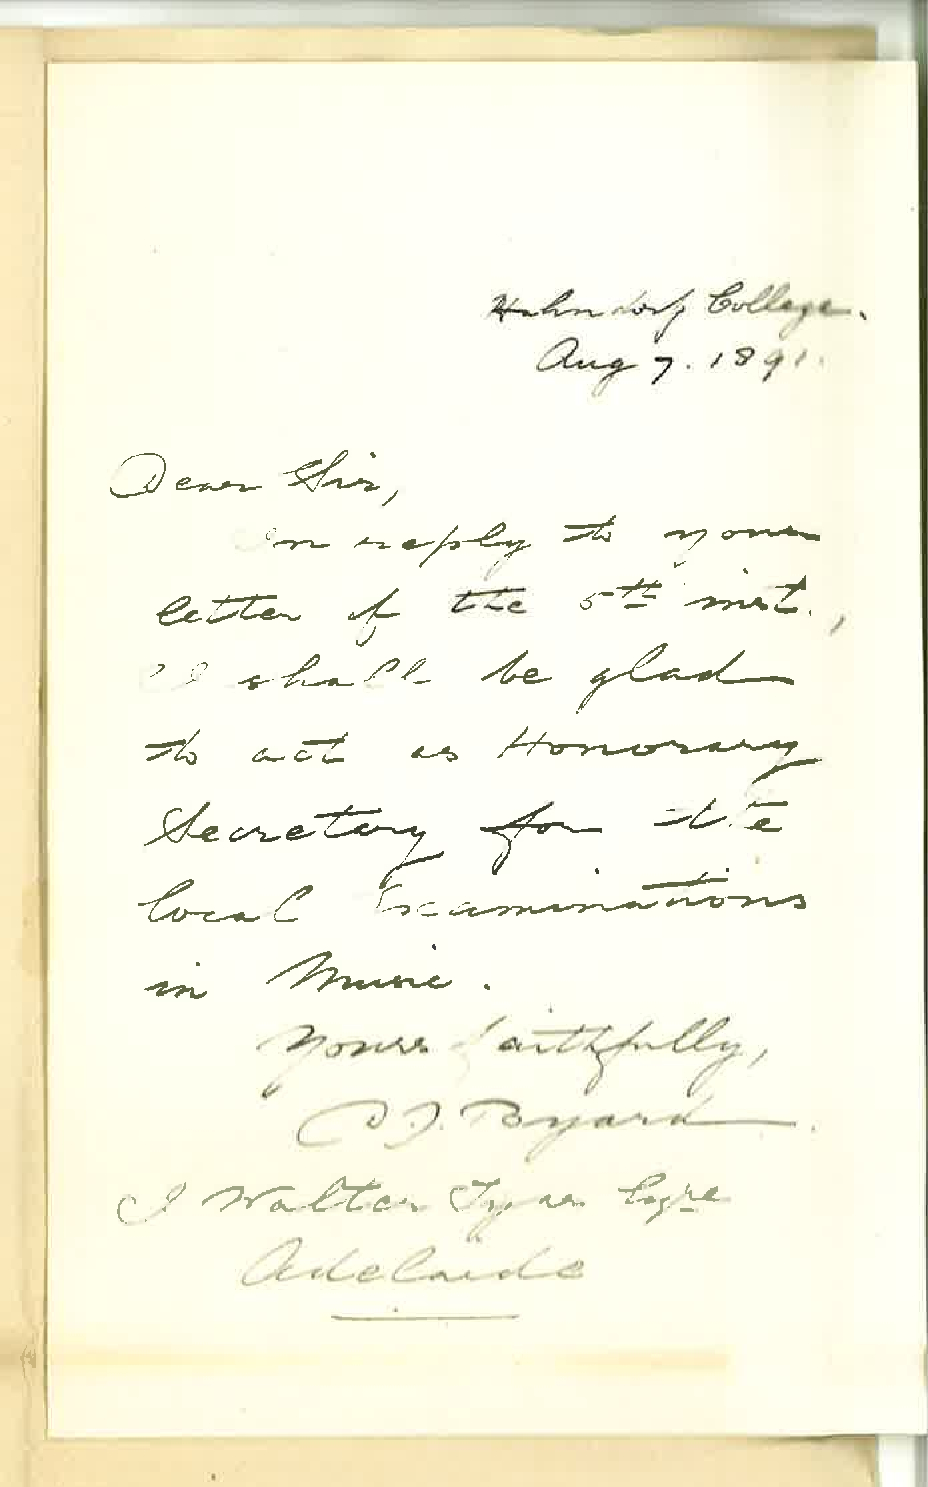 Hahndorf College.
Aug 7. 1891.
Dear Sir,
In reply to your
letter of the 5th inst.,
I shall be glad
to act as Honorary
Secretary for the
local Examinations
in Music.
Yours faithfully,
D. J. Byard.
J Walter Tyas Esqre
Adelaide